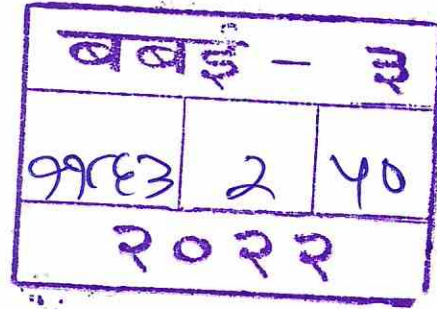 बबई - ३
११८६३ २ ५०
२०२२